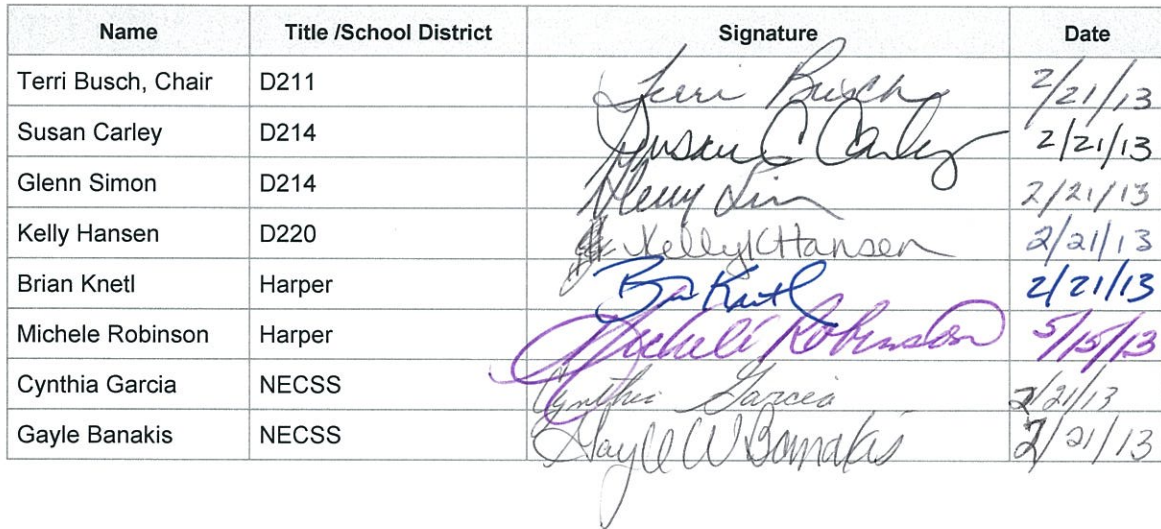 Name Title /School District Signature Date
Terri Busch, Chair D211 Terri Busch 2/21/13
Susan Carley D214 Susan C Carley 2/21/13
Glenn Simon D214 2/21/13
Kelly Hansen D220 Kelly K Hansen 2/21/13
Brian Knetl Harper 2/21/13
Michele Robinson Harper Michele Robinson 5/15/13
Cynthia Garcia NECSS Cynthia Garcia 2/21/13
Gayle Banakis NECSS Gayle W Banakis 2/21/13